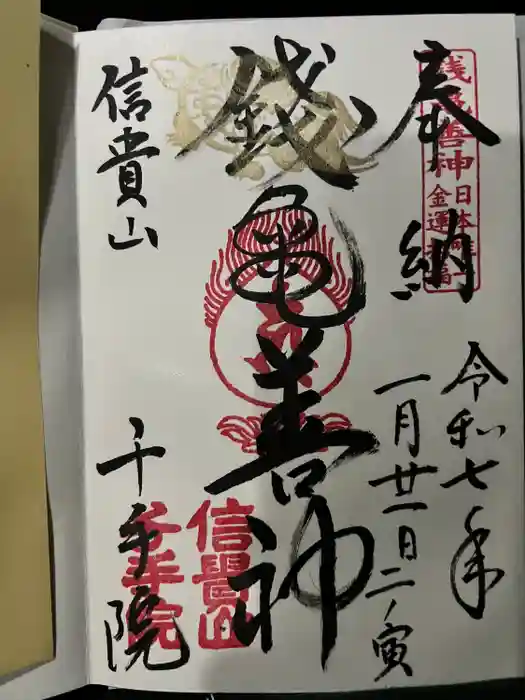 奉納
令和七年
一月廿一日二ノ寅
銭亀善神
信貴山
千手院
銭亀善神
日本唯一
金運招福
信貴山
千手院